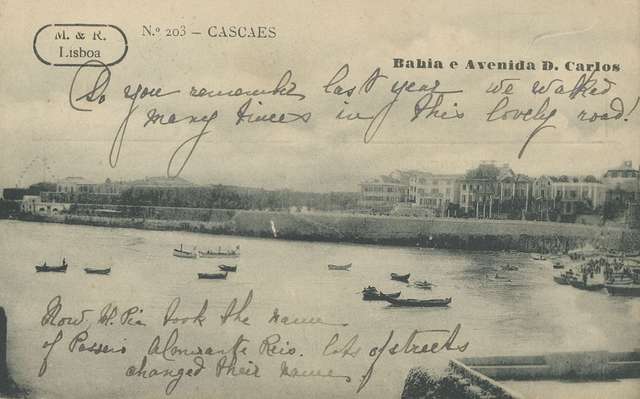 M. & R.
Lisboa
N.º 203 – CASCAES
Bahia e Avenida D. Carlos
Do you remember last year we walked
many times in this lovely road!
Now, it
took the name
of Passeio Almirante Reis. lots of streets
changed their names